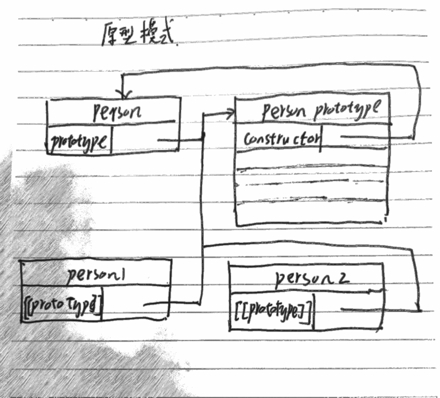 原型模式
Person
prototype
person prototype
constructor
person1
[[prototype]]
person2
[[prototype]]